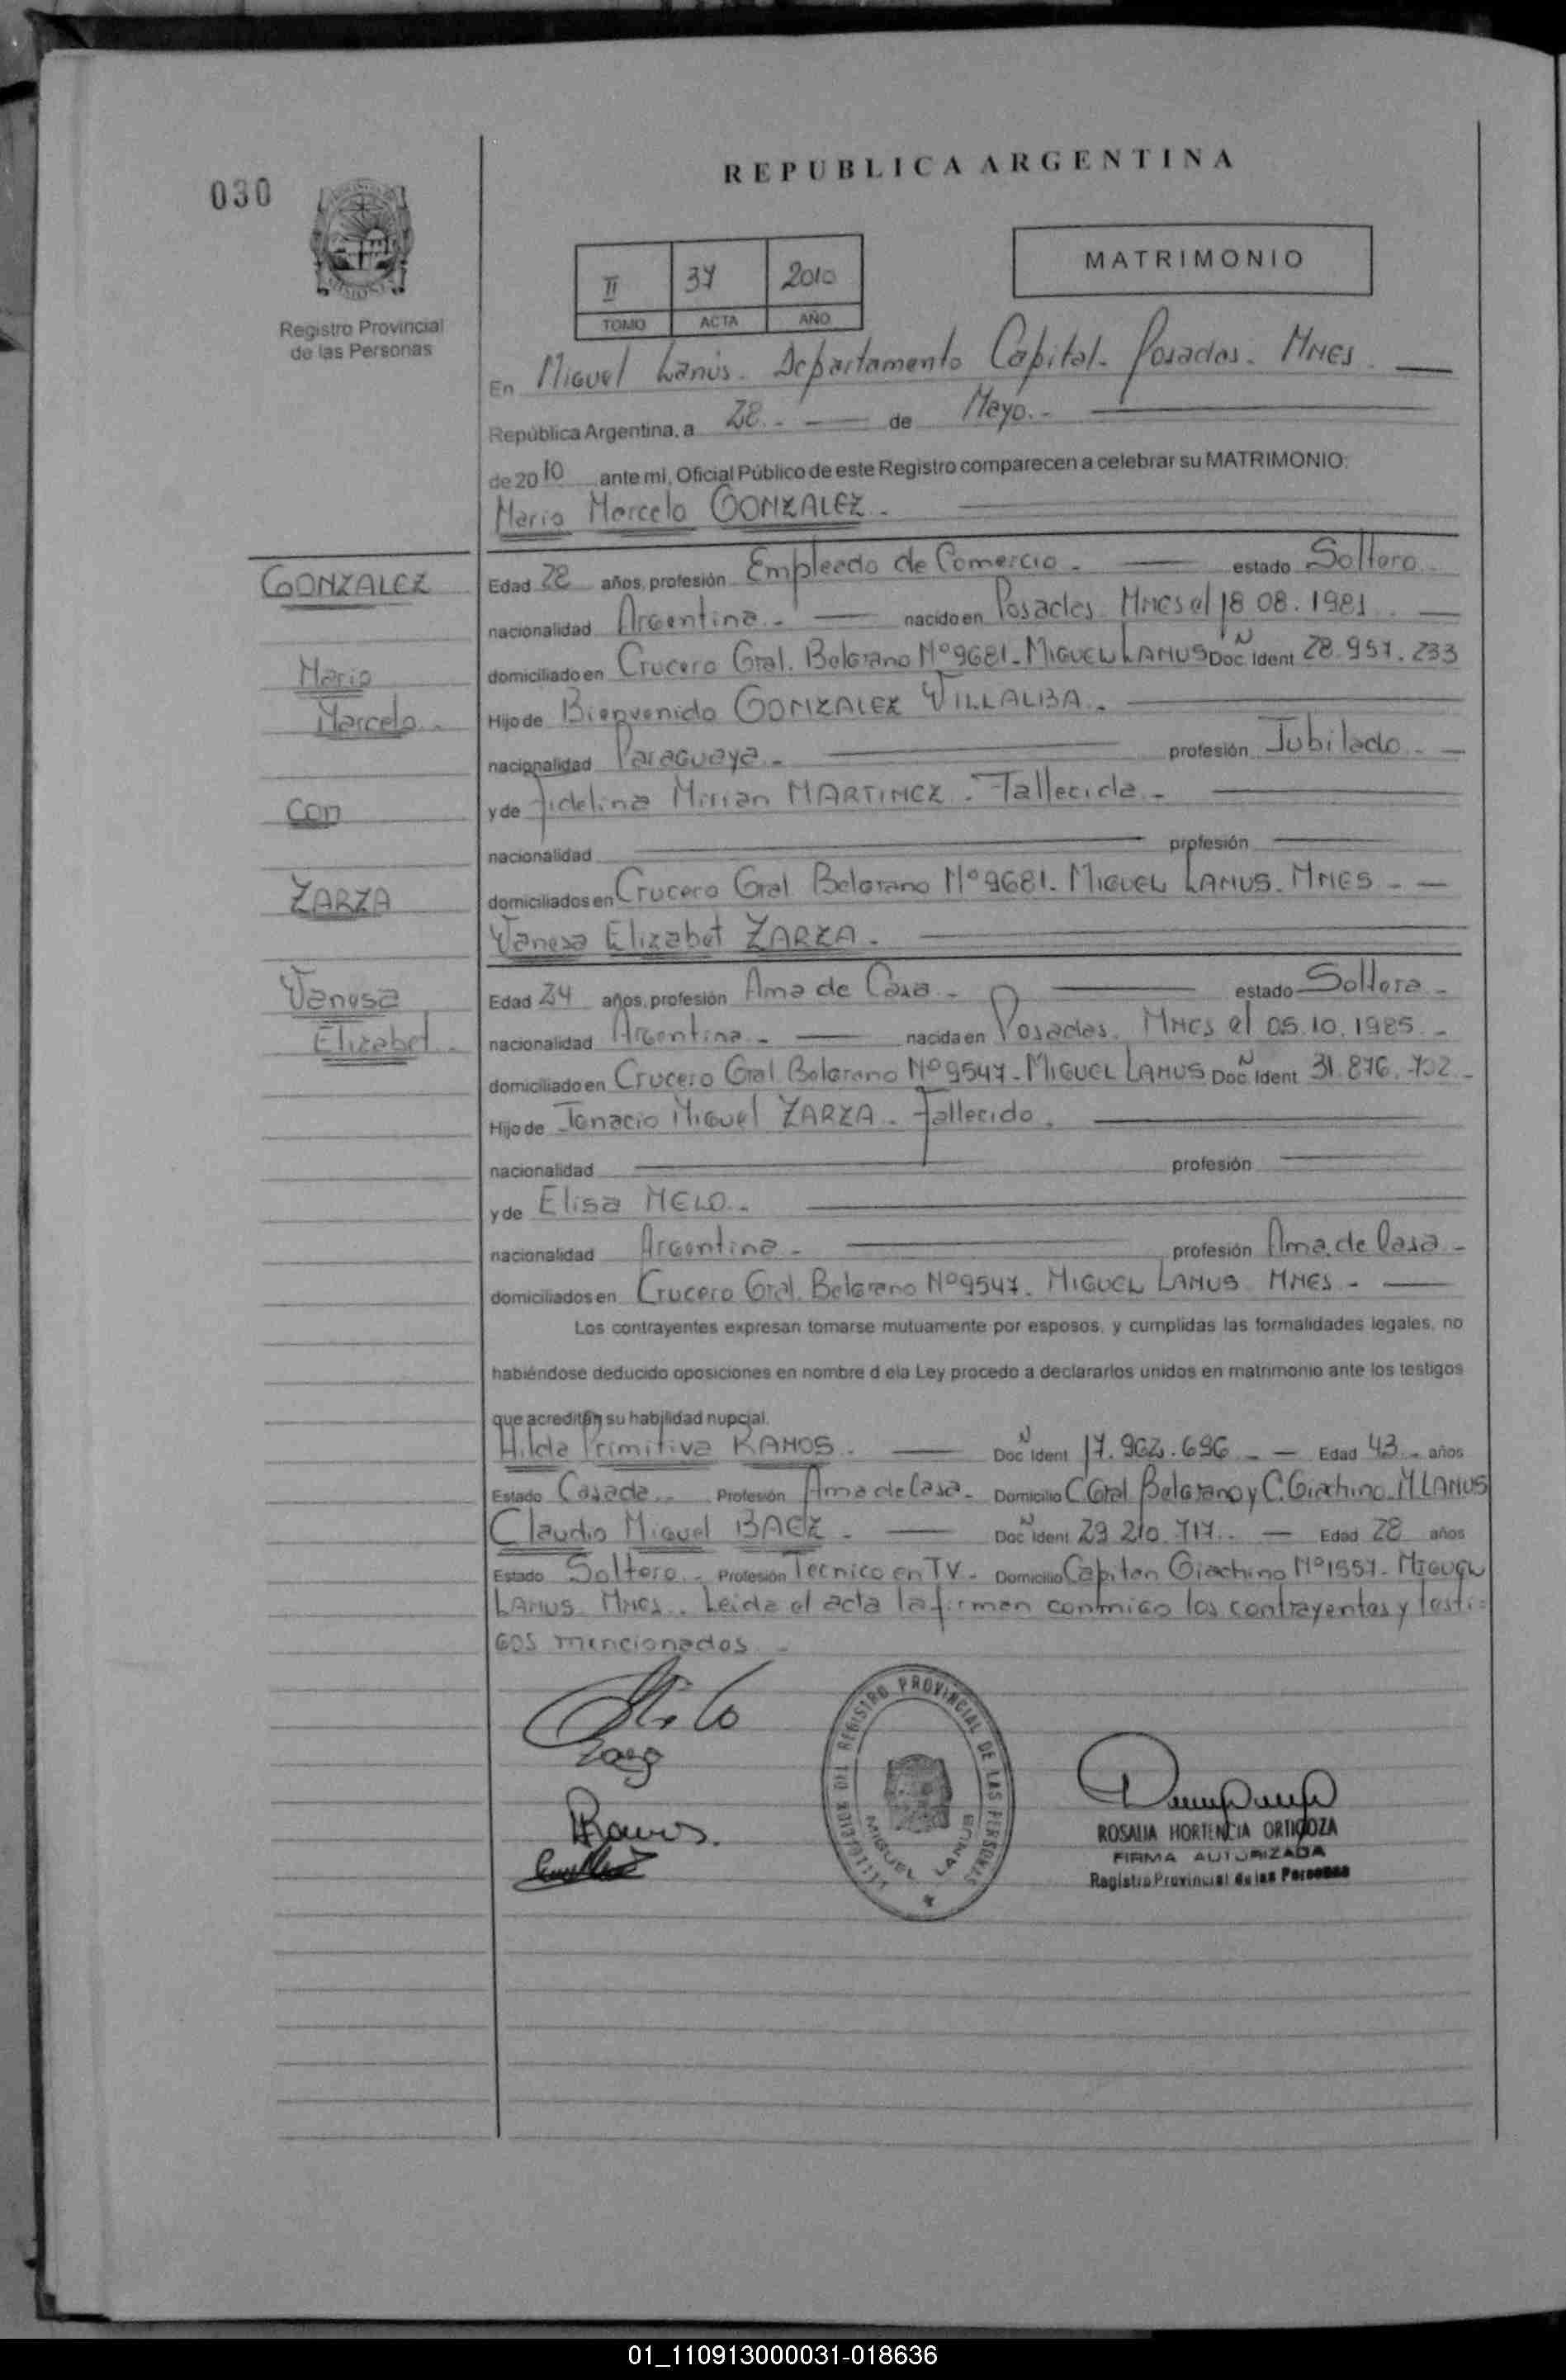 030
REPUBLICA ARGENTINA
II 37 2010
TOMO ACTA AÑO
MATRIMONIO
Registro Provincial
de las Personas
En Miguel Lanús. Departamento Capital. Posadas. Mnes.
República Argentina, a 28.- de Mayo.-
de 2010 ante mi, Oficial Público de este Registro comparecen a celebrar su MATRIMONIO:
Mario Marcelo GONZALEZ.
GONZALEZ
Mario
Marcelo.-
con
ZARZA
Vanesa
Elizabet.-
Edad 28 años, profesión Empleado de Comercio.- estado Soltero
nacionalidad Argentina.- nacido en Posadas Mnes el 18 08. 1981
domiciliado en Crucero Gral. Belgrano Nº 9681- MIGUEL LANUS Doc. Ident N 28.957.233
Hijo de Bienvenido GONZALEZ VILLALBA.-
nacionalidad Paraguaya.- profesión Jubilado.-
y de Fidelina Mirian MARTINEZ. Fallecida.-
nacionalidad profesión
domiciliados en Crucero Gral Belgrano Nº 9681. MIGUEL LANUS. MNES.-
Vanesa Elizabet ZARZA.
Edad 24 años, profesión Ama de Casa.- estado Soltera.-
nacionalidad Argentina.- nacida en Posadas. Mnes el 05.10.1985.-
domiciliado en Crucero Gral Belgrano Nº 9547- MIGUEL LANUS Doc. Ident N 31.876.702.-
Hijo de Ignacio Miguel ZARZA. Fallecido.
nacionalidad profesión
y de Elisa MELO.-
nacionalidad Argentina.- profesión Ama de Casa.-
domiciliados en Crucero Gral. Belgrano Nº 9547. MIGUEL LANUS MNES.-
Los contrayentes expresan tomarse mutuamente por esposos, y cumplidas las formalidades legales, no
habiéndose deducido oposiciones en nombre d ela Ley procedo a declararlos unidos en matrimonio ante los testigos
que acreditan su habilidad nupcial.
Hilda Primitiva RAMOS. Doc Ident N 17.962.696.- Edad 43.- años
Estado Casada.- Profesión Ama de Casa.- Domicilio C. Gral. Belgrano y C. Giachino. M LANUS
Claudio Miguel BAEZ.- Doc Ident N 29 210.717.- Edad 28 años
Estado Soltero.- Profesión Tecnico en TV.- Domicilio Capitan Giachino Nº 1557- MIGUEL
LANUS Mnes. Leida el acta la firman conmigo los contrayentes y testi-
gos mencionados.-
DELEGACION DEL REGISTRO PROVINCIAL DE LAS PERSONAS
MIGUEL LANUS
ROSALIA HORTENCIA ORTIGOZA
FIRMA AUTORIZADA
Registro Provincial de las Personas
01_110913000031-018636